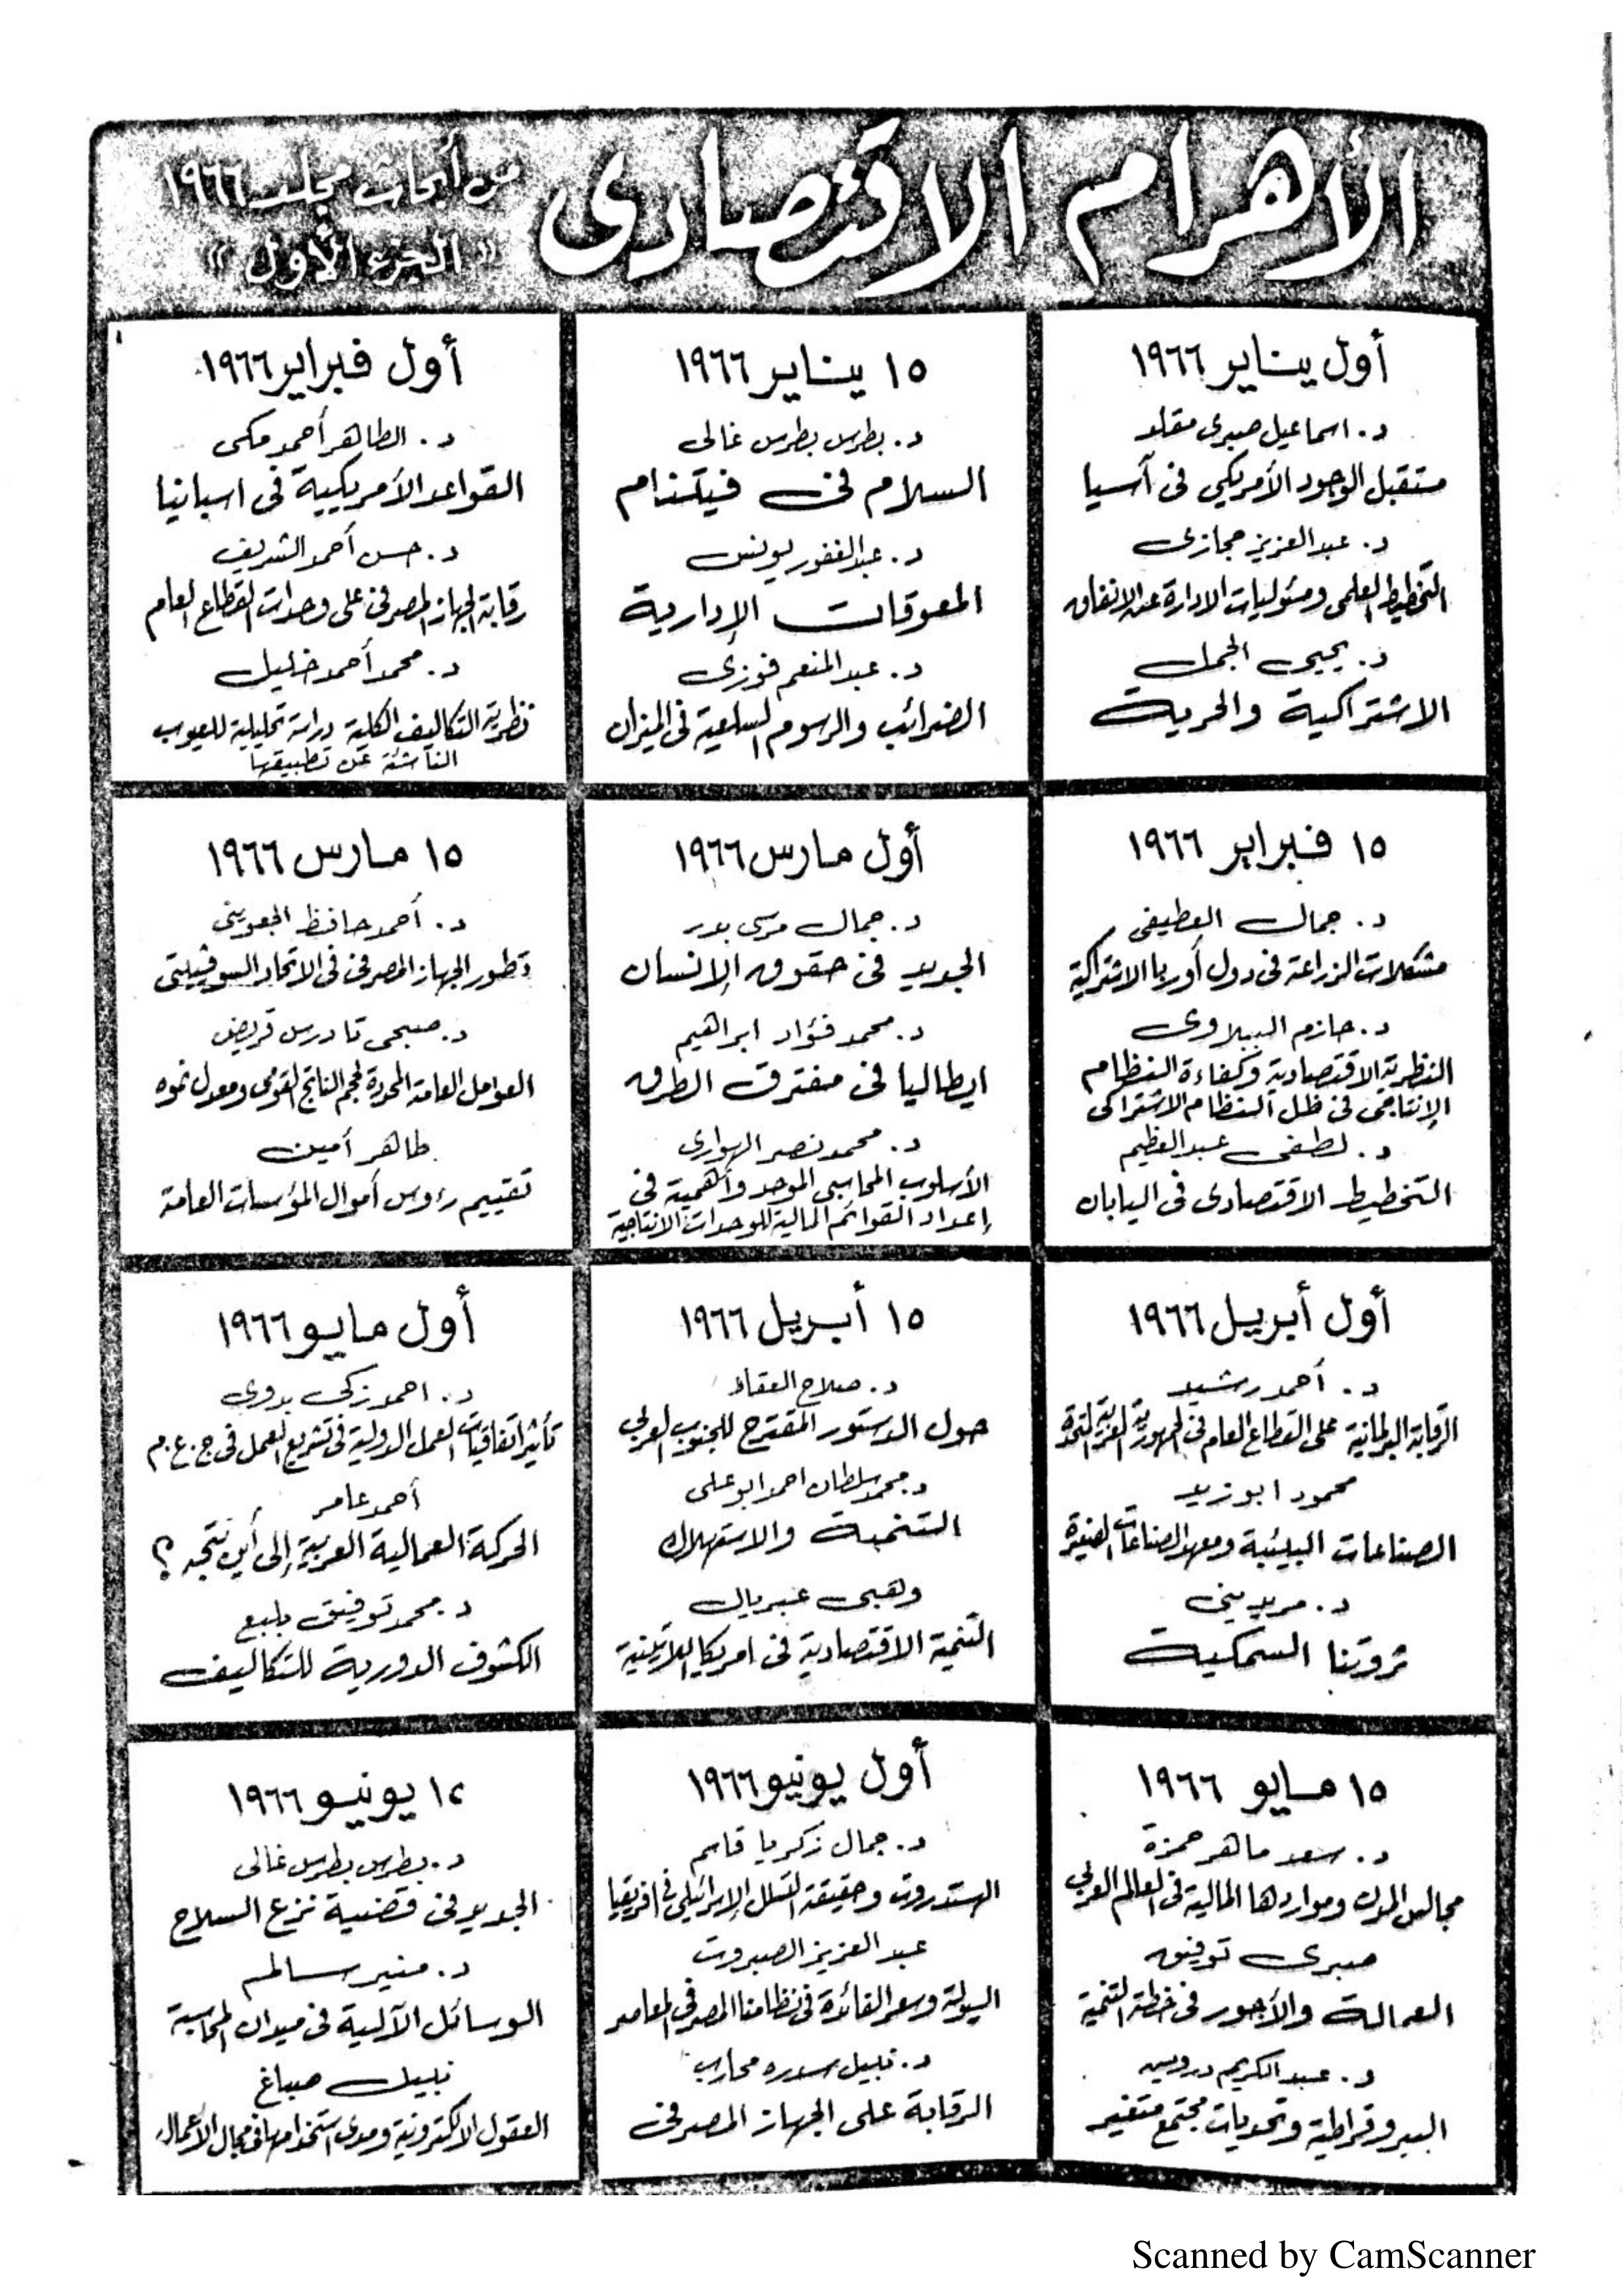 الأهرام الاقتصادى
من أبحاث مجلد ١٩٦٦
« الجزء الأول »
أول يناير ١٩٦٦
د. اسماعيل صبرى مقلد
مستقبل الوجود الأمريكى فى آسيا
د. عبد العزيز حجازى
التخطيط العلمى ومسئوليات الادارة عند الانفاق
د. يحيى الجمل
الاشتراكية والحرية
١٥ يناير ١٩٦٦
د. بطرس بطرس غالى
السلام فى فيتنام
د. عبد الغفور يونس
المعوقات الإدارية
د. عبد المنعم فوزى
الضرائب والرسوم السلعية فى الميزان
أول فبراير ١٩٦٦
د. الطاهر أحمد مكى
القواعد الأمريكية فى اسبانيا
د. حسن أحمد الشريف
رقابة الجهاز المصرفى على وحدات القطاع العام
د. محمد أحمد خليل
نظرية التكاليف الكلية دراسة تحليلية للعيوب
الناشئة عن تطبيقها
١٥ فبراير ١٩٦٦
د. جمال العطيفى
مشكلات الزراعة فى دول أوربا الاشتراكية
د. حازم الببلاوى
النظرية الاقتصادية وكفاءة النظام
الإنتاجى فى ظل النظام الاشتراكى
د. لطفى عبد العظيم
التخطيط الاقتصادى فى اليابان
أول مارس ١٩٦٦
د. جمال مرسى بدر
الجديد فى حقوق الإنسان
د. محمد فؤاد ابراهيم
ايطاليا فى مفترق الطرق
د. محمد نصر الهوارى
الأسلوب المحاسبى الموحد وأهمية فى
إعداد القوائم المالية للوحدات الانتاجية
١٥ مارس ١٩٦٦
د. أحمد حافظ الجعوينى
تطور الجهاز المصرفى فى الاتحاد السوفيتى
د. صبحى تادرس قريصة
العوامل العامة المحددة لحجم الناتج القومى ومعدل نموه
طاهر أمين
تقييم رءوس أموال المؤسسات العامة
أول أبريل ١٩٦٦
د. أحمد رشيد
الرقابة البرلمانية على القطاع العام فى الجمهورية العربية المتحدة
محمود ابو زيد
الصناعات البيئية ومعهد الصناعات الصغيرة
د.
ثروتنا السمكية
١٥ أبريل ١٩٦٦
د. صلاح العقاد
حول الدستور المقترح للجنوب العربى
د. محمد سلطان احمد ابو على
التنمية والاستهلاك
وهبى غبريال
التنمية الاقتصادية فى امريكا اللاتينية
أول مايو ١٩٦٦
د. احمد زكى بدوى
تأثير اتفاقيات العمل الدولية فى تشريع العمل فى ج.ع.م
أحمد عامر
الحركة العمالية العربية إلى أين تتجه ؟
د. محمد توفيق بلبع
الكشوف الدورية للتكاليف
١٥ مايو ١٩٦٦
د. سعد ماهر حمزة
مجالس المدن ومواردها المالية فى العالم العربى
صبرى توفيق
العمالة والأجور فى خطة التنمية
د. عبد الكريم درويش
البيروقراطية وتحديات مجتمع متغير
أول يونيو ١٩٦٦
د. جمال زكريا قاسم
الهستدروت وحقيقة التسلل الإسرائيلى فى افريقيا
عبد العزيز الصبروت
السيولة وسعر الفائدة فى نظامنا المصرفى المعاصر
د. نبيل محارب
الرقابة على الجهاز المصرفى
١٥ يونيو ١٩٦٦
د. بطرس بطرس غالى
الجديد فى قضية نزع السلاح
د. منير سالم
الوسائل الآلية فى ميدان المحاسبة
نبيل صباغ
العقول الالكترونية ومدى استخدامها فى مجال الأعمال
Scanned by CamScanner